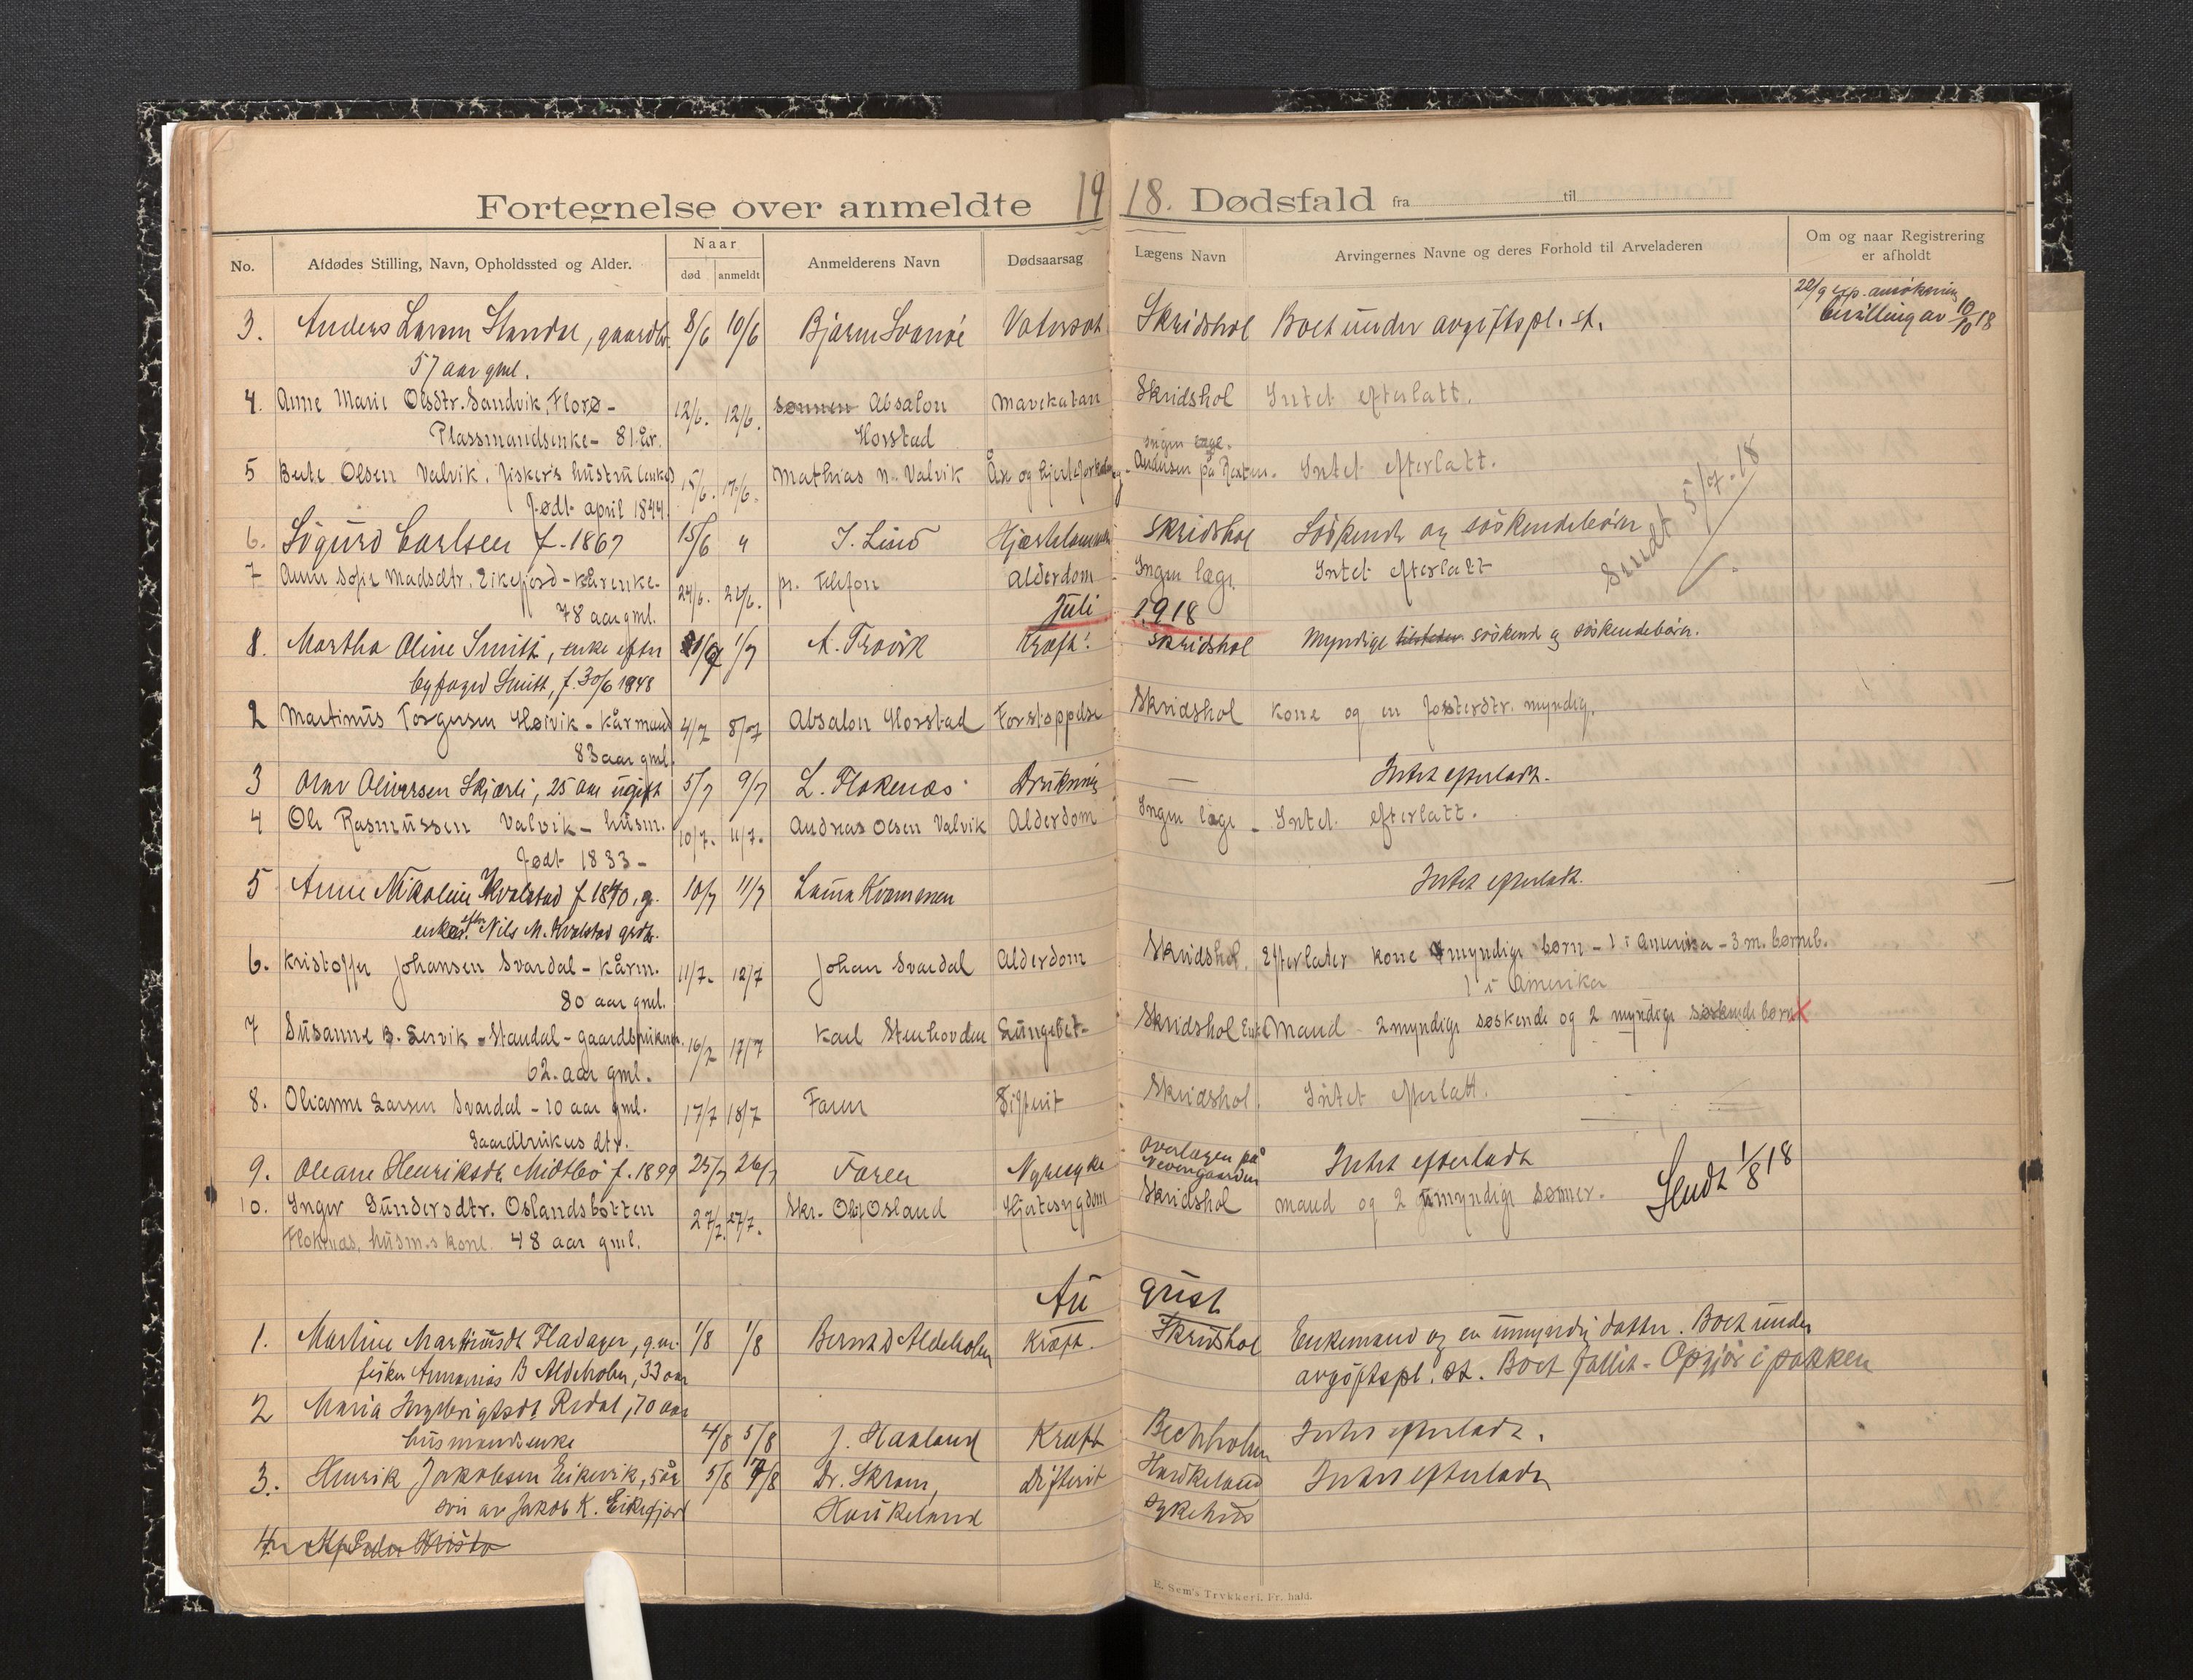 Fortegnelse over anmeldte 1918. Dødsfald fra til
No. Afdødes Stilling, Navn, Opholdssted og Alder. Naar død anmeldt Anmelderens Navn Dødsaarsag Lægens Navn Arvingernes Navne og deres Forhold til Arveladeren Om og naar Registrering er afholdt
22/9 exp. ansökning
bevilling av 10/10 18
3. Anders Larsen Standal, gaardbr. 8/6 10/6 Bjarne Svanöe Vatersot Skridshol Boet under avgiftspl. st.
57 aar gml.
4. Anne Marie Olsdtr. Sandvik, Florø - 12/6. 12/6. sønnen Absalon Mavekatar Skridshol Intet efterlatt.
Plassmandsenke - 81 år. Horstad
Ingen læge.
5 Berte Olsen Valvik. Fiskers hustru (enke) 15/6. 17/6. Mathias N. Valvik Andersen på Intet efterlatt.
Født april 1844.
6. Sigurd Carlsen f. 1867 15/6 " J. Lind Skridshol Söskende og söskendebörn
Sendt 5/7-18
7 Anne Sofie Madsdtr. Eikefjord - kårenke. 24/6. 24/6. pr. Telefon Alderdom - Ingen læge. Intet efterlatt
78 aar gml.
Juli 1918
1. Martha Oline Smith, enke efter 1/7 A. Trovik Kræft. Skridshol Myndige söskende og söskendebörn.
byfoged Smith, f. 30/6 1848
2 Martinus Torgersen Høivik - kårmand 4/7 8/7 Absalon Horstad Forstoppelse Skridshol Kone og en fosterdtr. myndig.
83 aar gml.
3 Olav Oliversen Skjærli, 25 aar ugift 5/7 9/7 L. Flokenæs Drukning — Intet efterladt.
4 Ole Rasmussen Valvik - husm. 10/7. 11/7. Andreas Olsen Valvik Alderdom Ingen læge - Intet efterlatt.
Født 1833 -
5 Anne Nikoline Kvalstad f. 1840, g. 10/7 11/7 Laura Krammen Intet efterladt.
enke efter Nils M. Kvalstad
6. Kristoffer Johansen Svardal - kårm. 11/7. 12/7 Johan Svardal Alderdom Skridshol. Efterlater kone myndige børn - 1 i Amerika - 3 m. børneb.
80 aar gml. 1 i Amerika
7 Susanne B. Lervik - Standal - gaardbrukerk. 16/7 17/7 Karl Stenhovden Lungebet- Skridshol Enke Mand - 2 myndige søskende og 2 myndige søskendebørn X
62. aar gml.
8. Olianne Larsen Svardal - 10 aar gml. 17/7 18/7 Faren Difterit Skridshol Intet efterlatt.
Gaardbrukers dtr.
9. Oleane Henriksdtr Midtbö f. 1899 25/7 26/7 Faren Nyresyke Overlægen på Intet efterladt
Nevengaarden
10. Inger Gundersdtr. Oslandsbotten 27/7. 27/7. Skr. Olaf Osland Hjertesygdom Skridshol mand og 2 umyndige sønner. Sendt 1/8 18
Flokenæs, husm.s kone. 48 aar gml.
August
1. Martine Martinusdtr Hladager, g.m. 1/8 1/8 Bernt D Aldeholm Kræft. Skridshol Enkemand og en umyndig datter. Boet under
fisker Annanias B Aldeholm, 33 aar avgiftspl. st. Boet fallit - Opgjör i pakken
2 Maria Ingebrigtsdt. Redal, 70 aar
husmandsenke 4/8 5/8 J. Haaland Kræft Bechholm Intet efterladt.
3. Henrik Jakobsen Eikevik, 5 år 5/8 7/8 Dr. Skram, Difterit Haukeland Intet efterladt
sön av Jakob K. Eikefjord Haukeland sykehus
4.
E. Sem's Trykkeri, Fr. hald.